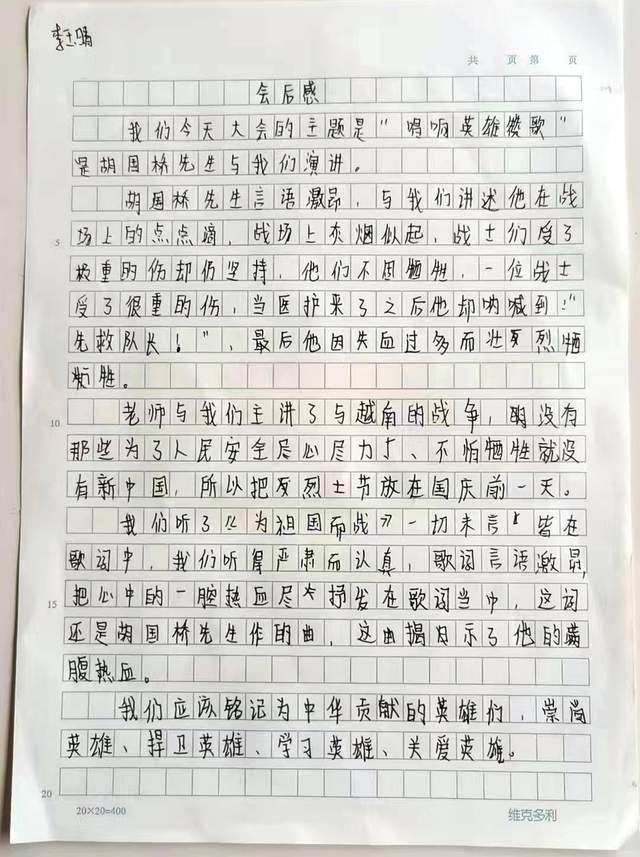 李玉晴
共 页 第 页
会后感
我们今天大会的主题是"唱响英雄赞歌"
是胡国桥先生与我们演讲。
胡国桥先生言语激昂，与我们讲述他在战
场上的点点滴，战场上灰烟似起，战士们受了
极重的伤却仍坚持，他们不思牺牲，一位战士
受了很重的伤，当医护来了之后他却呐喊到："
先救队长！"，最后他因失血过多而壮烈牺
牲。
老师与我们主讲了与越南的战争，明没有
那些为了人民安全尽心尽力、不怕牺牲就没
有新中国，所以把烈士节放在国庆前一天。
我们听了《为祖国而战》一切未言皆在
歌词中，我们听得严肃而认真，歌词言语激昂，
把心中的一腔热血尽抒发在歌词当中，这词
还是胡国桥先生作的曲，这曲揭示了他的满
腹热血。
我们应该铭记为中华贡献的英雄们，崇尚
英雄、捍卫英雄、学习英雄、关爱英雄。
5
10
15
20
20×20=400
维克多利